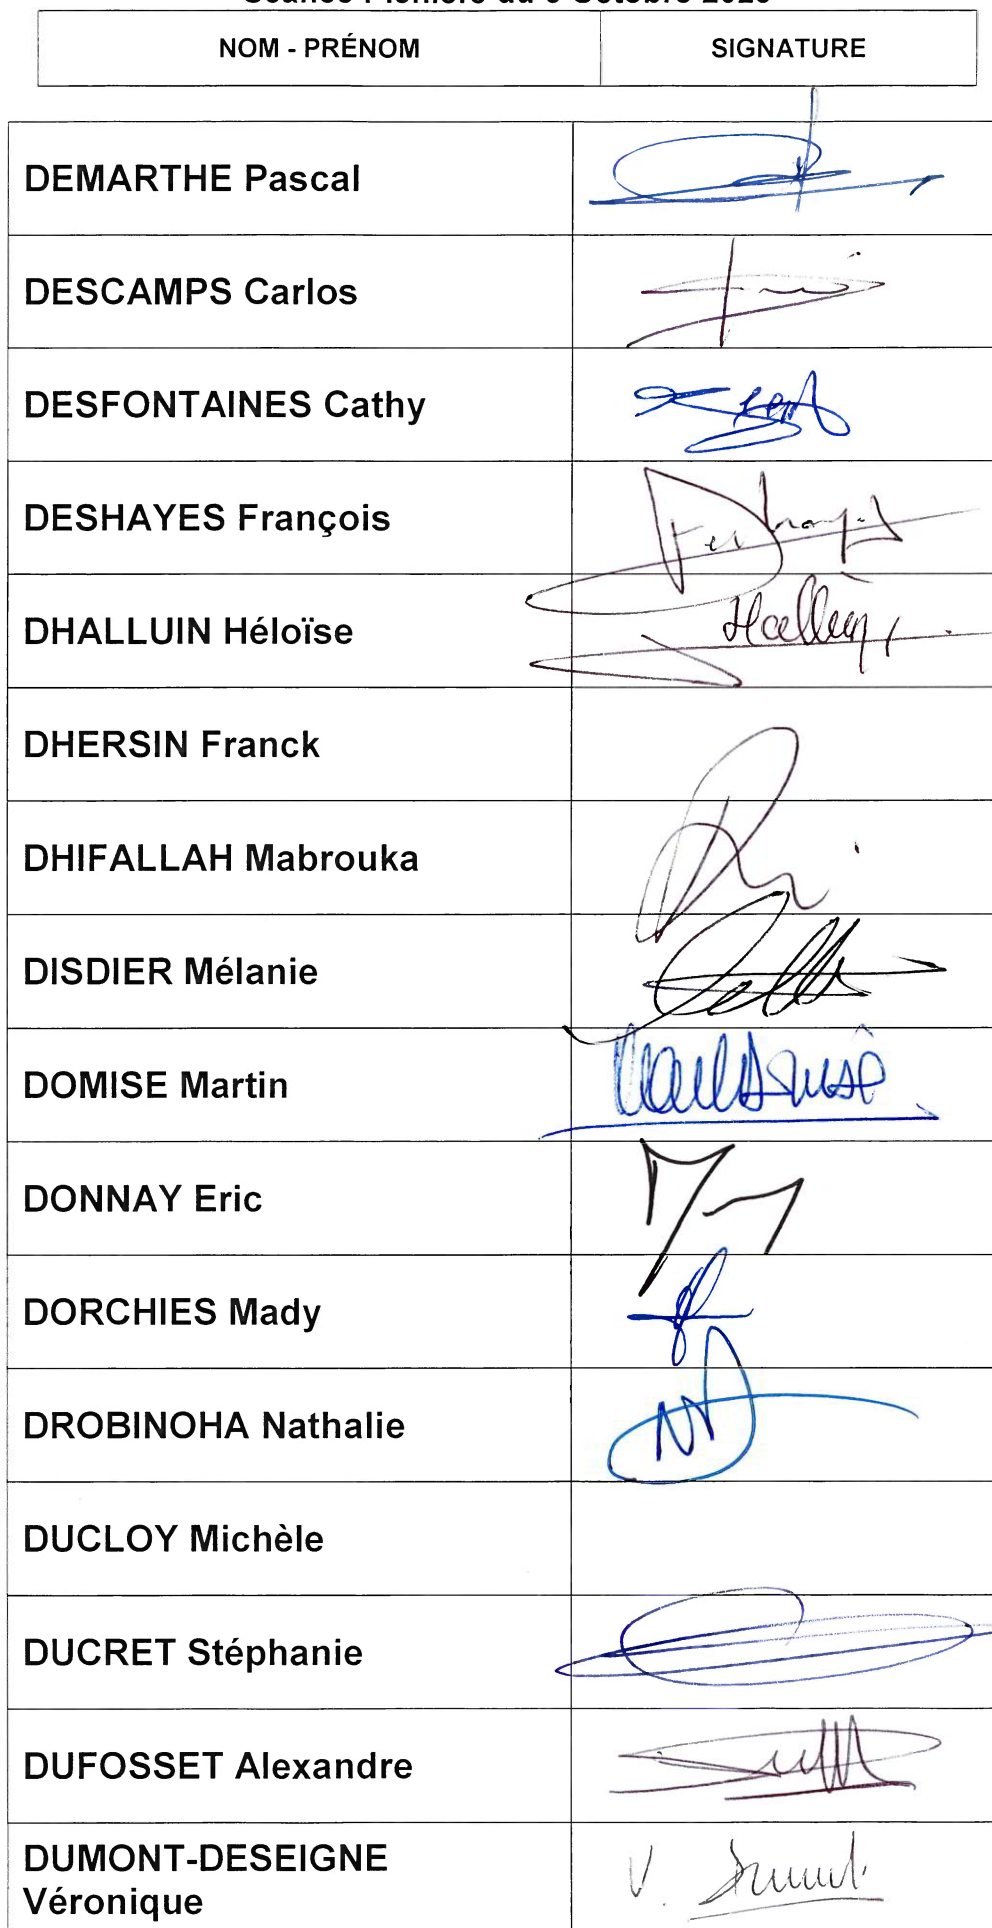 NOM - PRÉNOM SIGNATURE
DEMARTHE Pascal
DESCAMPS Carlos
DESFONTAINES Cathy
DESHAYES François
DHALLUIN Héloïse
DHERSIN Franck
DHIFALLAH Mabrouka
DISDIER Mélanie
DOMISE Martin
DONNAY Eric
DORCHIES Mady
DROBINOHA Nathalie
DUCLOY Michèle
DUCRET Stéphanie
DUFOSSET Alexandre
DUMONT-DESEIGNE
Véronique